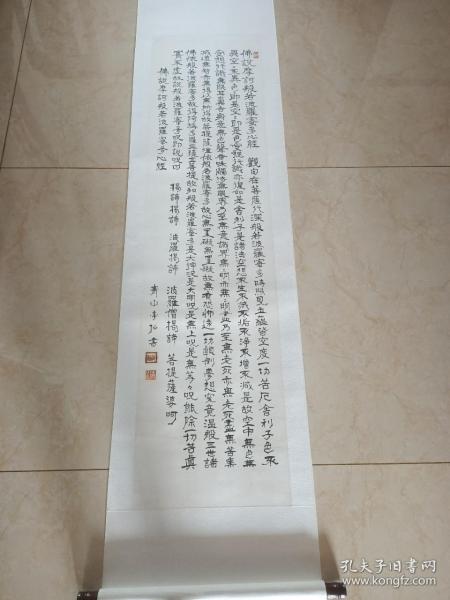 佛說摩訶般若波羅蜜多心經 觀自在菩薩行深般若波羅蜜多時照見五蘊皆空度一切苦厄舍利子色不
異空空不異色色即是空空即是色受想行識亦復如是舍利子是諸法空相不生不滅不垢不淨不增不減是故空中無色無
受想行識無眼耳鼻舌身意無色聲香味觸法無眼界乃至無意識界無無明亦無無明盡乃至無老死亦無老死盡無苦集
滅道無智亦無得以無所得故菩提薩埵依般若波羅蜜多故心無罣礙無罣礙故無有恐怖遠離一切顛倒夢想究竟涅般三世諸
佛依般若波羅蜜多故得阿耨多羅三藐三菩提故知般若波羅蜜多是大神咒是大明咒是無上咒是無等等咒能除一切苦真
實不虛故說般若波羅蜜多咒即說咒曰 揭諦揭諦 波羅揭諦 波羅僧揭諦 菩提薩婆呵
佛說摩訶般若波羅蜜多心經
青山李弘書
孔夫子旧书网
kongfz.com